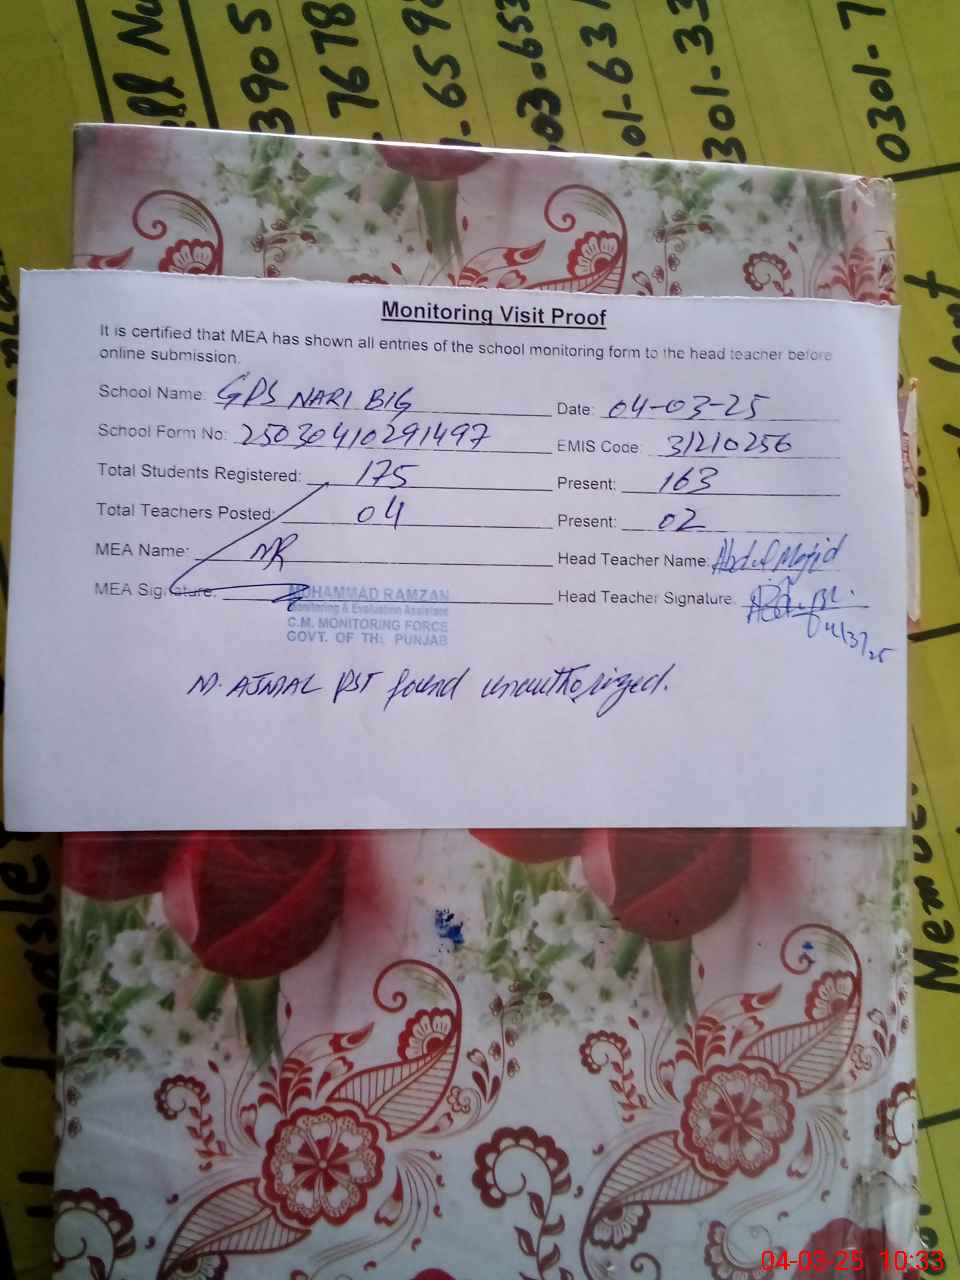 ell Nu
3905
7678
-659
03-653
01-631
301-33
0301-7
Monitoring Visit Proof
It is certified that MEA has shown all entries of the school monitoring form to the head teacher before
online submission.
School Name: GPS NARI BIG Date: 04-03-25
School Form No: 25030410291497 EMIS Code: 31210256
Total Students Registered: 175 Present: 163
Total Teachers Posted: 04 Present: 02
MEA Name: MR Head Teacher Name: Abdul Majid
MEA Signature: Head Teacher Signature:
04/3/25
MUHAMMAD RAMZAN
Monitoring & Evaluation Assistant
C.M. MONITORING FORCE
GOVT. OF THE PUNJAB
M. AJMAL PST found unauthorized.
Membe
04-03-25 10:33